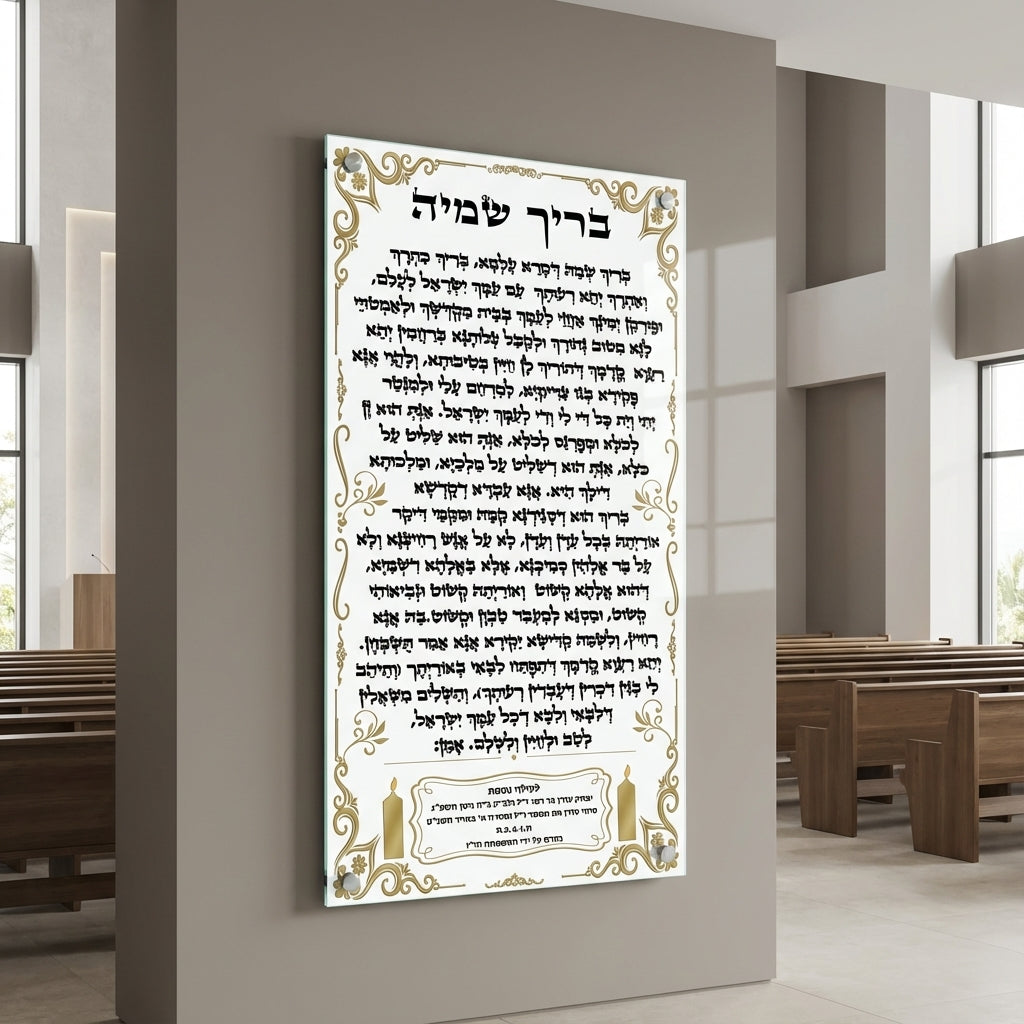 בריך שמיה
בְּרִיךְ שְׁמֵהּ דְּמָרֵא עָלְמָא, בְּרִיךְ כִּתְרָךְ
וְאַתְרָךְ יְהֵא רְעוּתָךְ עִם עַמָּךְ יִשְׂרָאֵל לְעָלַם,
יְמִינָךְ אַחֲזֵי לְעַמָּךְ בְּבֵית מִקְדָּשָׁךְ
לָנָא מִטּוּב נְהוֹרָךְ וּלְקַבֵּל צְלוֹתָנָא בְּרַחֲמִין יְהֵא
קֳדָמָךְ דְּתוֹרִיךְ לָן חַיִּין בְּטִיבוּתָא, אֲנָא
פְּקִידָא בְּגוֹ צַדִּיקַיָּא, לְמִרְחַם עֲלַי וּלְמִנְטַר
יָתִי וְיָת כָּל דִּי לִי וְדִי לְעַמָּךְ יִשְׂרָאֵל. אַנְתְּ הוּא זָן
לְכֹלָּא וּמְפַרְנֵס לְכֹלָּא, אַנְתְּ הוּא שַׁלִּיט עַל
כֹּלָּא, אַנְתְּ הוּא דְּשַׁלִּיט עַל מַלְכַיָּא, וּמַלְכוּתָא
דִּילָךְ הִיא. אֲנָא עַבְדָּא דְקֻדְשָׁא
בְּרִיךְ הוּא דְּסָגִידְנָא קַמֵּהּ וּמִקַּמֵּי דִּיקַר
אוֹרַיְתֵהּ בְּכָל עִדָּן וְעִדָּן, לָא עַל אֱנָשׁ רָחִיצְנָא וְלָא
עַל בַּר אֱלָהִין סָמִיכְנָא, אֶלָּא בֶּאֱלָהָא דִשְׁמַיָּא,
דְּהוּא אֱלָהָא קְשׁוֹט וְאוֹרַיְתֵהּ קְשׁוֹט וּנְבִיאוֹהִי
קְשׁוֹט, וּמַסְגֵּא לְמֶעְבַּד טַבְוָן וּקְשׁוֹט. בֵּהּ אֲנָא
רָחִיץ, וְלִשְׁמֵהּ קַדִּישָׁא יַקִּירָא אֲנָא אֵמַר תֻּשְׁבְּחָן.
יְהֵא רַעֲוָא קֳדָמָךְ דְּתִפְתַּח לִבָּאִי בְּאוֹרַיְתָךְ וְתֵיהַב
לִי בְּנִין דִּכְרִין דְּעָבְדִין רְעוּתָךְ, וְתַשְׁלִים מִשְׁאֲלִין
דְּלִבָּאִי וְלִבָּא דְכָל עַמָּךְ יִשְׂרָאֵל,
לְטַב וּלְחַיִּין וְלִשְׁלָם. אָמֵן:
לעילוי נשמת
ת.נ.צ.ב.ה
על ידי המשפחה